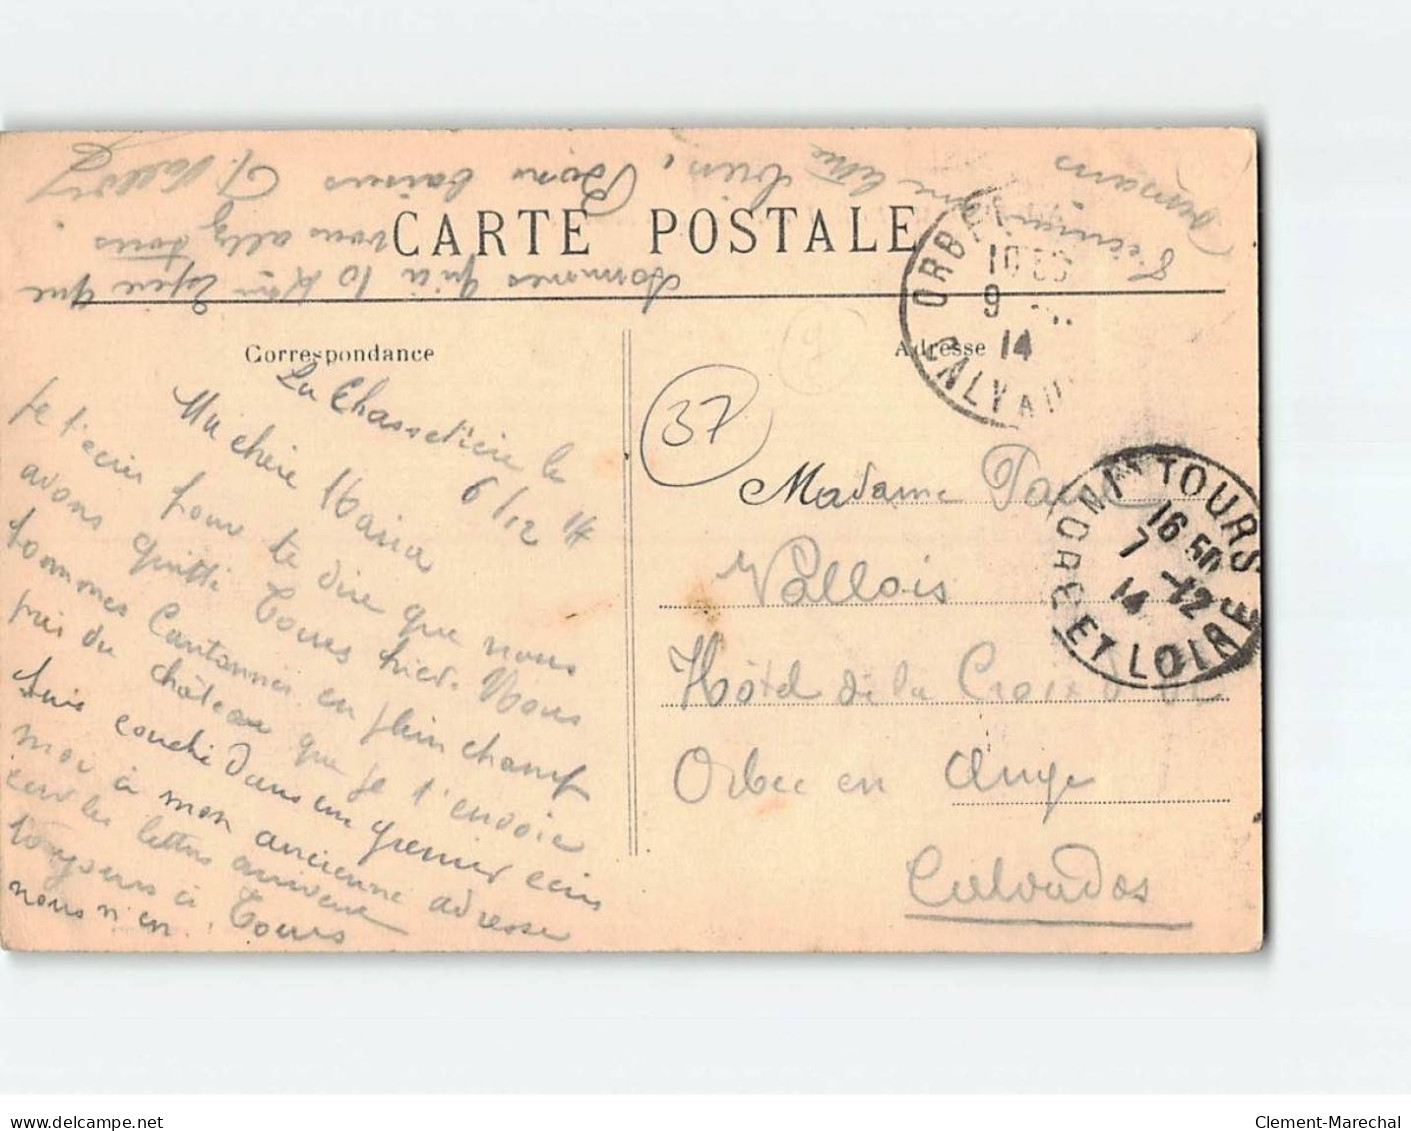 CARTE POSTALE
Correspondance
Adresse
La Chassetière le
6/12 14
Ma chère Maria
Je t'écris pour te dire que nous
avons quitté Tours hier. Nous
sommes cantonnés en plein champ
près du château que je t'envoie
suis couché dans un grenier écris
moi à mon ancienne adresse
car les lettres arrivent
toujours à Tours
nous n'en
sommes qu'à 10 Km espère que
vous allez tous
bien, Bons baisers G. Vallois
Demain
j'écrirai une lettre
37
Madame
Vallois
Hôtel de la Croix d'Or
Orbec en Auge
Calvados
ORBEC
10
9
14
CALVADOS
TOURS
16 50
7 -12
14
INDRE ET LOIRE
www.delcampe.net
Clement-Marechal